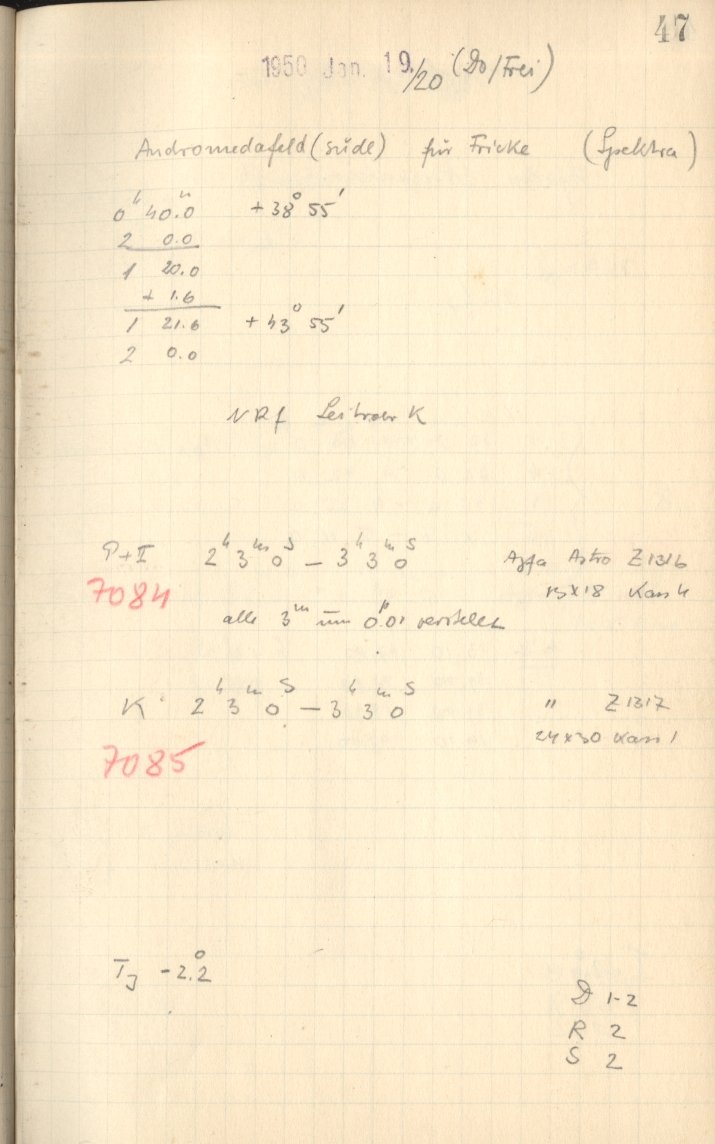 47
1950 Jan. 19./20 (Do/Frei)
Andromedafeld (südl) für Fricke (Spektra)
0ʰ 40.0ᵐ +38° 55'
2 0.0
1 20.0
+ 1.6
1 21.6 +43° 55'
2 0.0
NRf Leitrohr K
P+I 2ʰ 3ᵐ 0ˢ – 3ʰ 3ᵐ 0ˢ Agfa Astro Z1316
7084 13x18 Kass 4
alle 3ᵐ um 0".01 verstellen
K 2ʰ 3ᵐ 0ˢ – 3ʰ 3ᵐ 0ˢ " Z1317
7085 24x30 Kass 1
T_J -2.°2
D 1-2
R 2
S 2